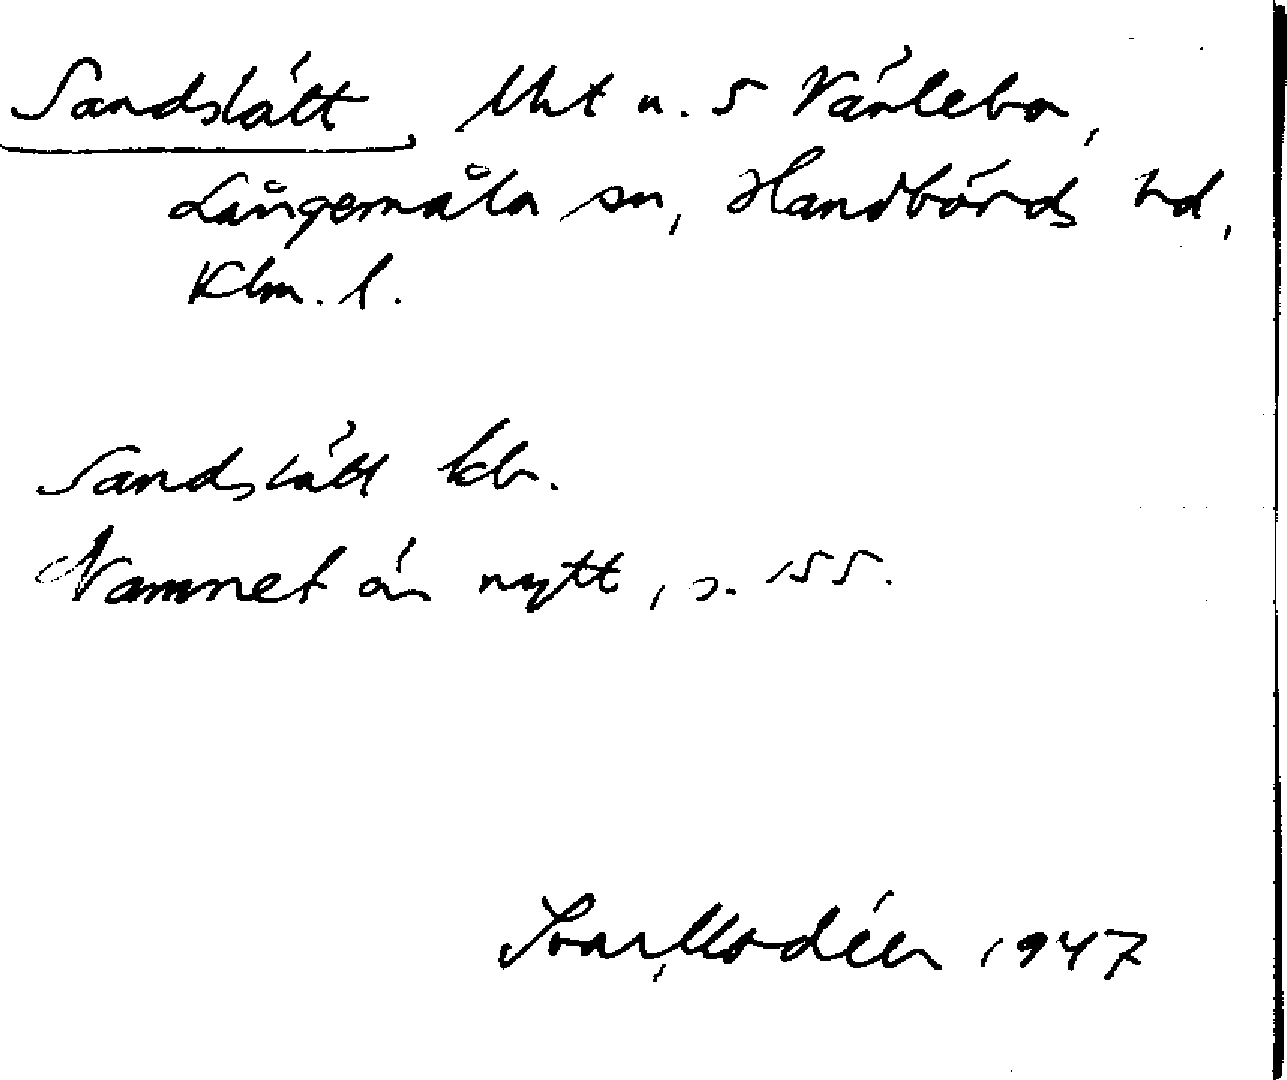 Sandslätt, Uht u. 5 Värlebo,
Långemåla sn, Handbörds hd,
Klm. l.
Sandslätt kb.
Namnet är nytt, s. 155.
Ivar Modéer 1947